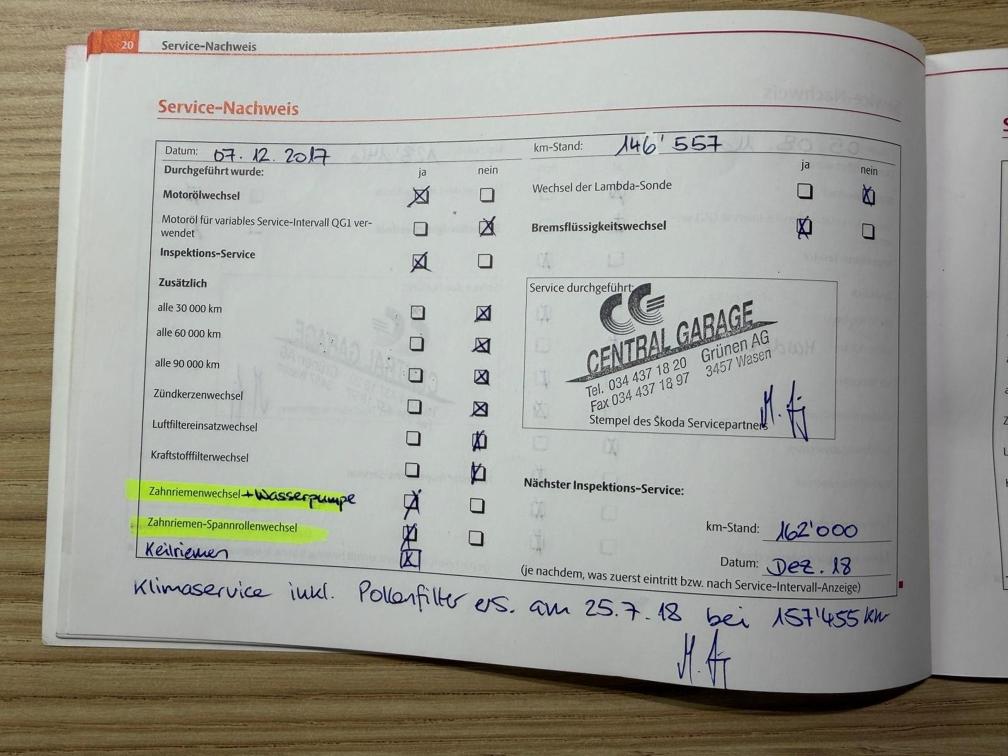 20 Service-Nachweis
Service-Nachweis
Datum: 07. 12. 2017
Durchgeführt wurde:
ja nein
Motorölwechsel
Motoröl für variables Service-Intervall QG1 ver-
wendet
Inspektions-Service
Zusätzlich
alle 30 000 km
alle 60 000 km
alle 90 000 km
Zündkerzenwechsel
Luftfiltereinsatzwechsel
Kraftstofffilterwechsel
Zahnriemenwechsel + Wasserpumpe
Zahnriemen-Spannrollenwechsel
Keilriemen
km-Stand: 146' 557
ja nein
Wechsel der Lambda-Sonde
Bremsflüssigkeitswechsel
Service durchgeführt:
CG
CENTRAL GARAGE
Tel. 034 437 18 20 Grünen AG
Fax 034 437 18 97 3457 Wasen
Stempel des Škoda Servicepartners
Nächster Inspektions-Service:
km-Stand: 162'000
Datum: Dez. 18
(je nachdem, was zuerst eintritt bzw. nach Service-Intervall-Anzeige)
Klimaservice inkl. Pollenfilter ers. am 25.7.18 bei 157'455 km